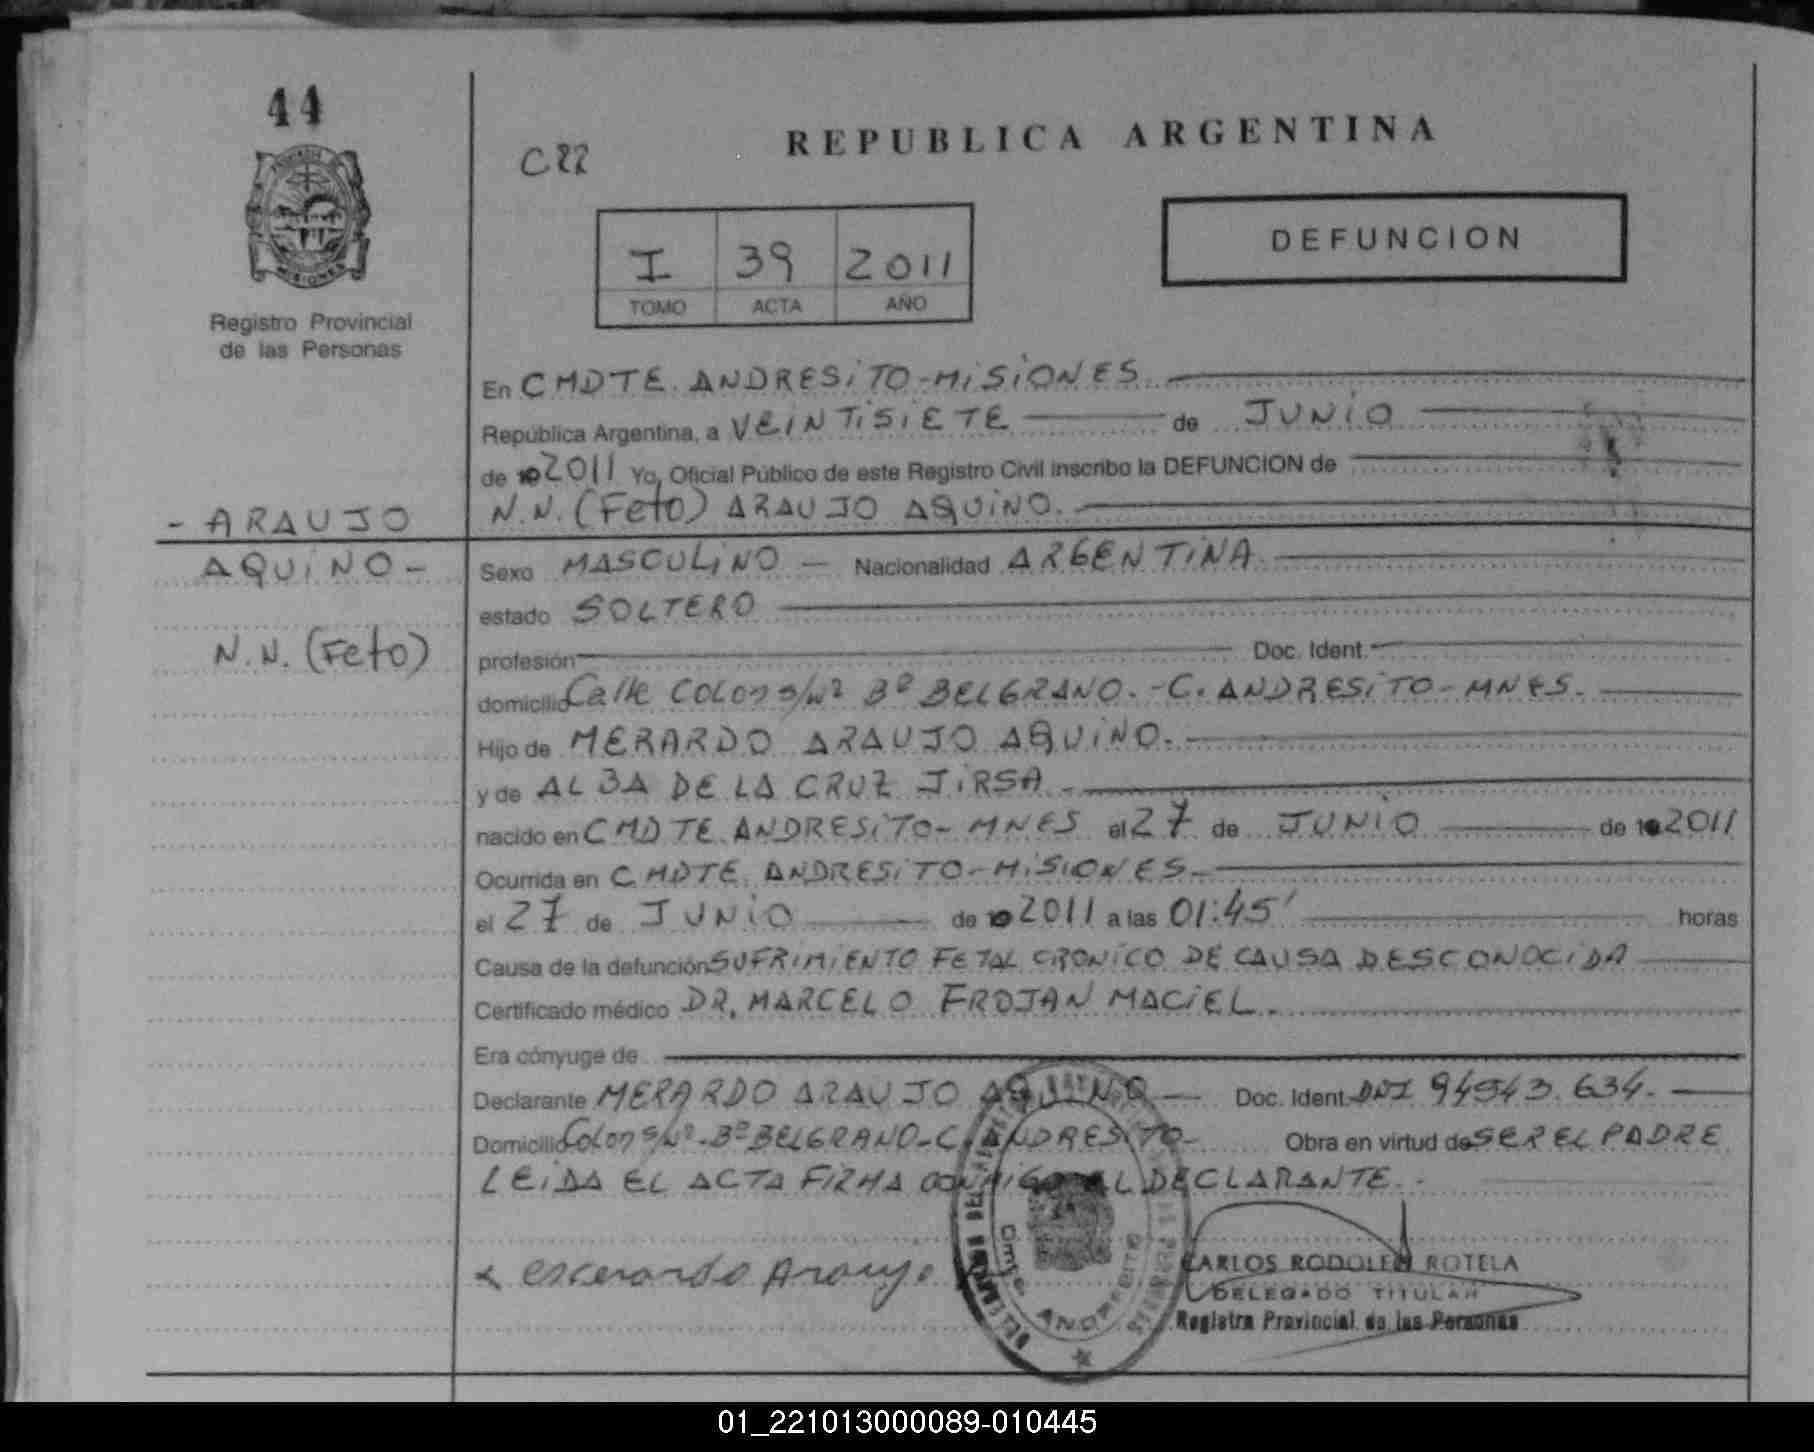 44
MISIONES
Registro Provincial
de las Personas
C22
REPUBLICA ARGENTINA
I 39 2011
TOMO ACTA AÑO
DEFUNCION
En CMDTE. ANDRESITO-MISIONES.
República Argentina, a VEINTISIETE de JUNIO
de 2011 Yo, Oficial Público de este Registro Civil inscribo la DEFUNCION de
N.N. (Feto) ARAUJO AQUINO.
- ARAUJO
AQUINO -
N.N. (Feto)
Sexo MASCULINO - Nacionalidad ARGENTINA
estado SOLTERO
profesión Doc. Ident.
domicilio Calle COLON s/nº Bº BELGRANO. - C. ANDRESITO - MNES.
Hijo de MERARDO ARAUJO AQUINO.
y de ALBA DE LA CRUZ JIRSA.
nacido en CMDTE. ANDRESITO - MNES el 27 de JUNIO de 2011
Ocurrida en CMDTE. ANDRESITO - MISIONES.
el 27 de JUNIO de 2011 a las 01:45' horas
Causa de la defunción SUFRIMIENTO FETAL CRONICO DE CAUSA DESCONOCIDA
Certificado médico DR. MARCELO FROJAN MACIEL.
Era cónyuge de
Declarante MERARDO ARAUJO AQUINO - Doc. Ident. DNI 94943.634.
Domicilio Colon s/nº - Bº BELGRANO - C. ANDRESITO - Obra en virtud de SER EL PADRE
LEIDA EL ACTA FIRMA CONMIGO EL DECLARANTE.
Araujo
CARLOS RODOLFO ROTELA
DELEGADO TITULAR
Registro Provincial de las Personas
01_221013000089-010445